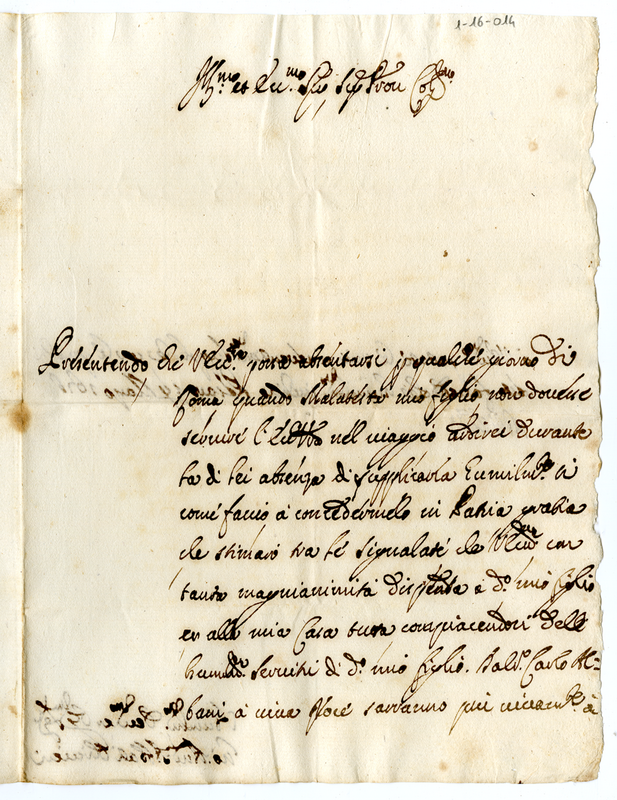 1-16-014
Ill.mo et Ecc.mo Sig.r Sig.r Pron Col.mo
Presentendo che V. Ecc.za possa absentarsi p qualche giorno di
Roma quando Malatesta mio figlio non dovesse
servire l'Ecc.za V.ra nel viaggio ardirei durante
la di lei absenza di supplicarla humilm.te si
come faccio à concedermelo in Patria gratia
che stimarò tra le signalate che V. Ecc.za con
tanta magnianimità dispensa à d.o mio figlio
et alla mia Casa tutta compiacendosi delli
humiliss.mi Servitii di d.o mio figlio. Bald.o Carlo Al=
bani à viva Voce saranno più vivam.te à